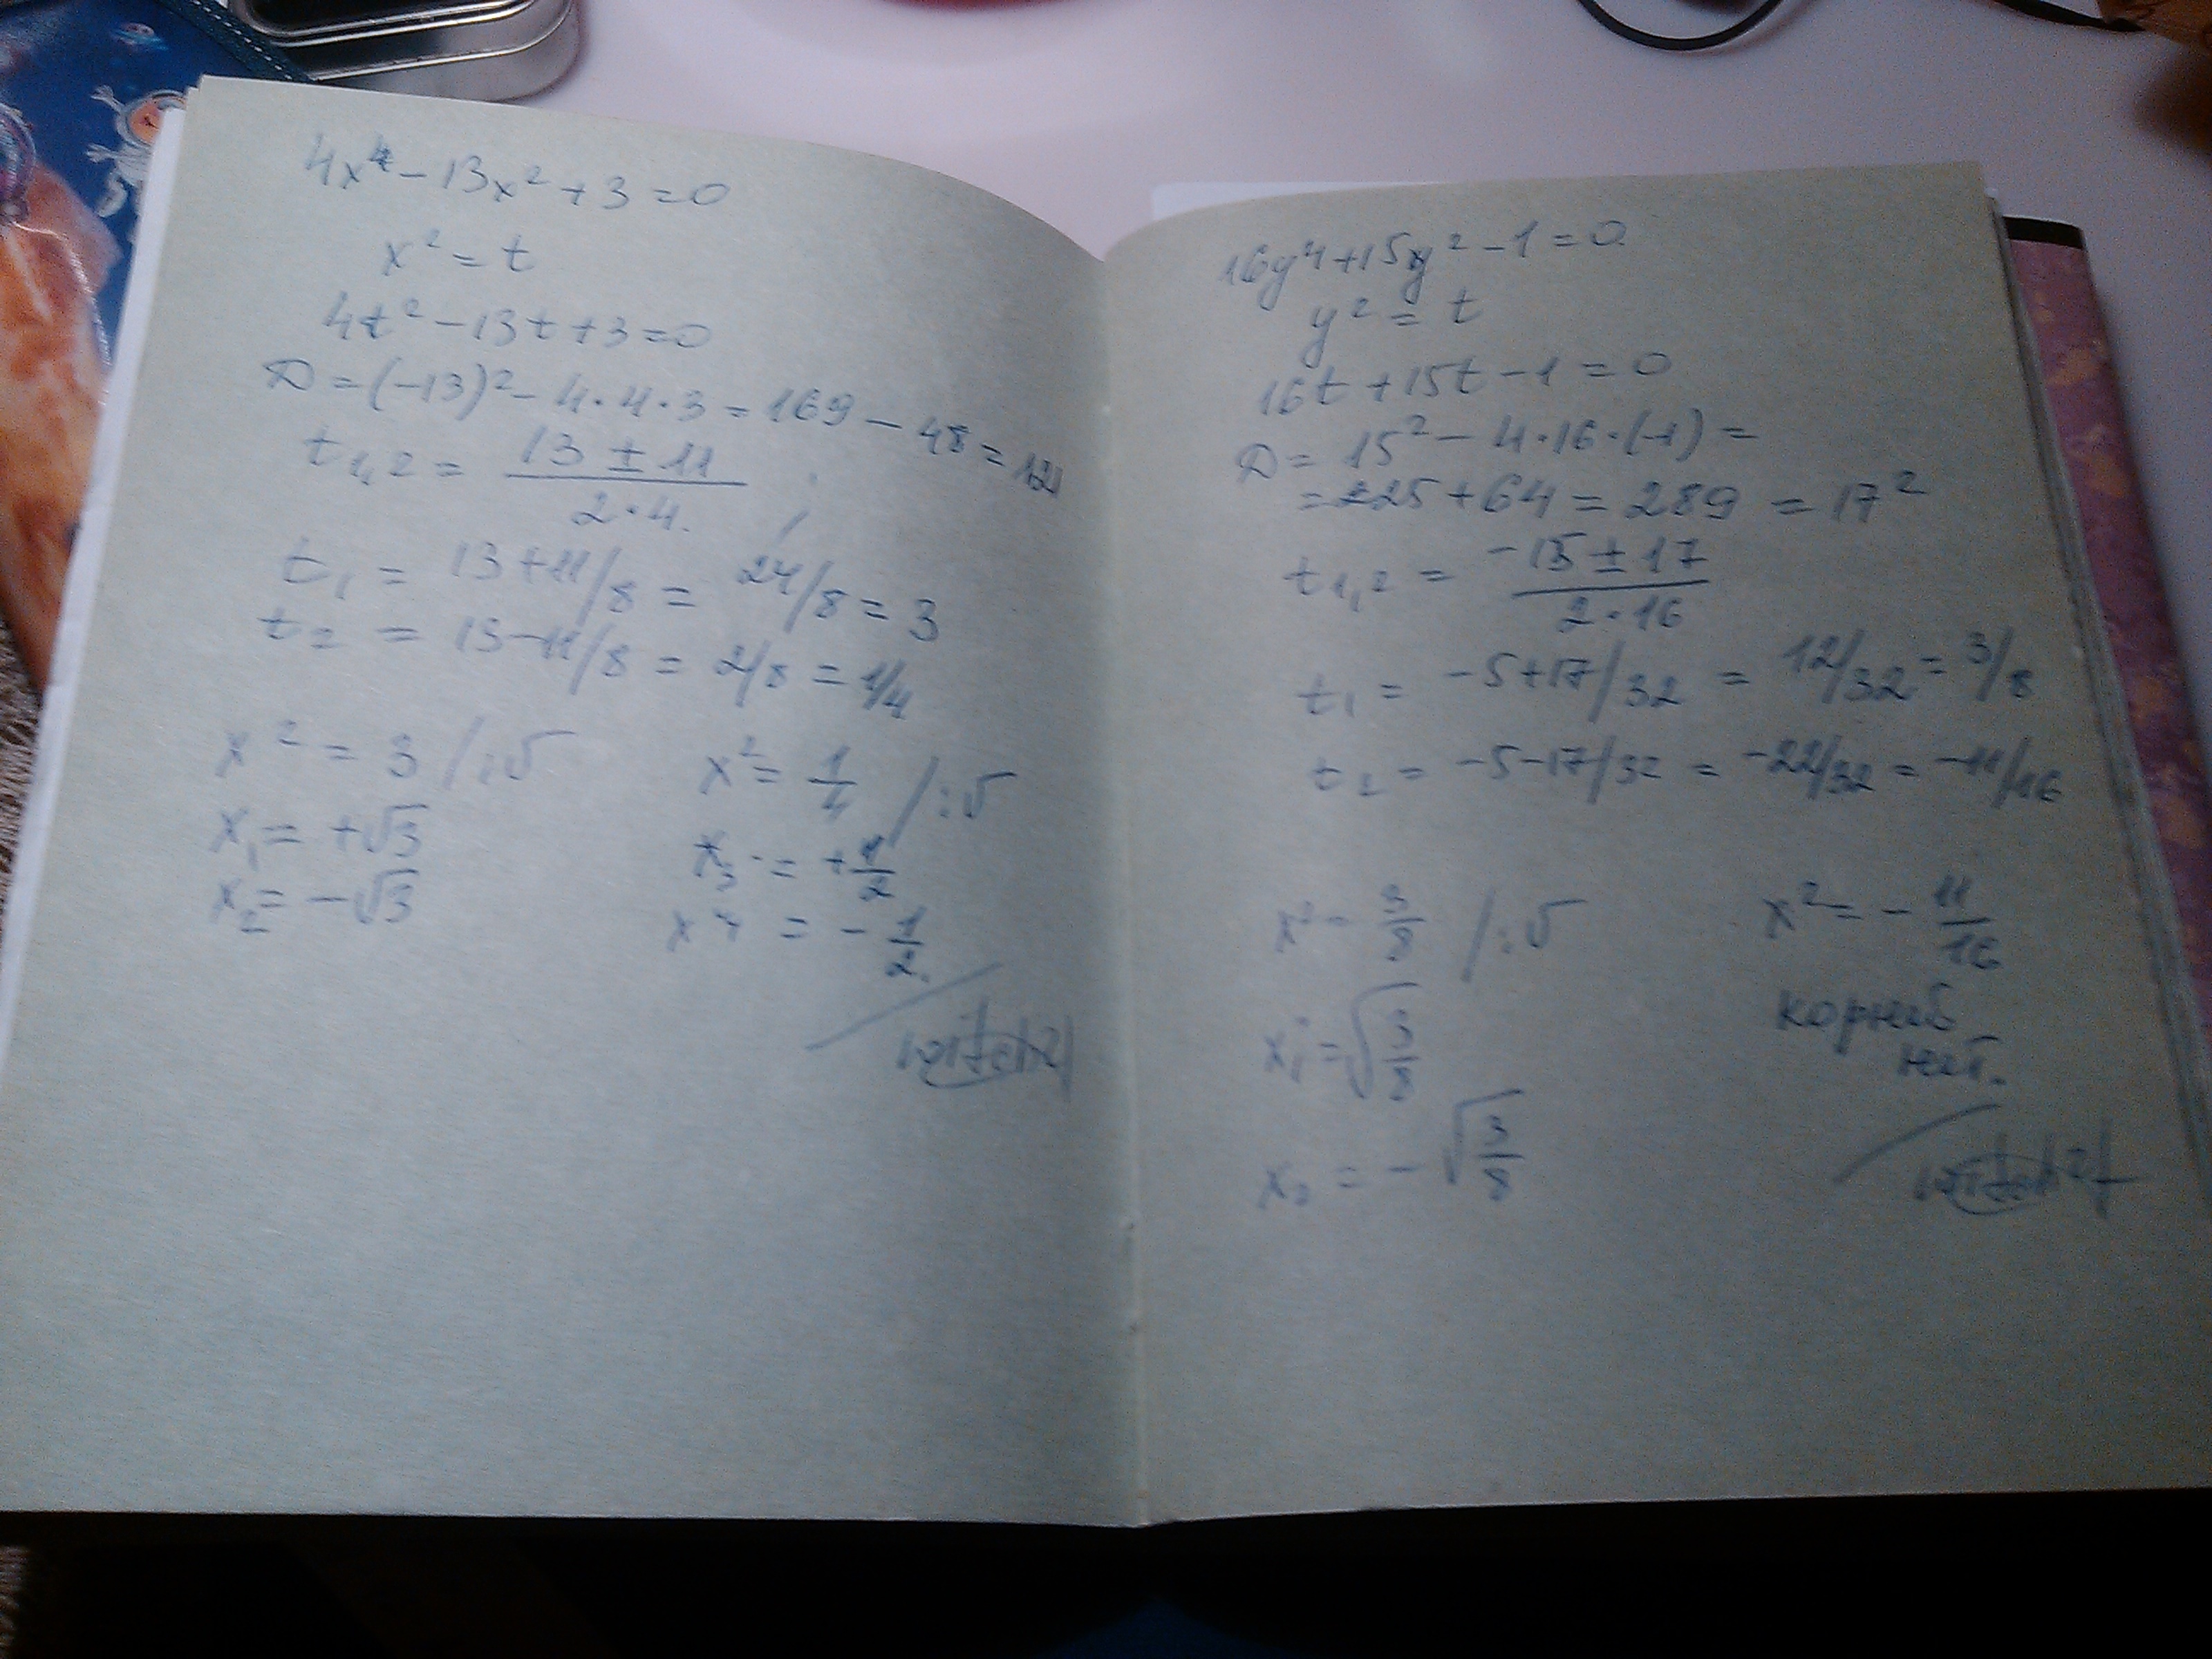 4x⁴ - 13x² + 3 = 0
x² = t
4t² - 13t + 3 = 0
D = (-13)² - 4·4·3 = 169 - 48 = 121
t₁,₂ = (13 ± 11)/(2·4)
t₁ = 13+11/8 = 24/8 = 3
t₂ = 13-11/8 = 2/8 = 1/4
x² = 3 /:√
x₁ = +√3
x₂ = -√3
x² = 1/4 /:√
x₃ = +1/2
x₄ = -1/2
16y⁴ + 15y² - 1 = 0
y² = t
16t + 15t - 1 = 0
D = 15² - 4·16·(-1) =
= 225 + 64 = 289 = 17²
t₁,₂ = (-15 ± 17)/(2·16)
t₁ = -5+17/32 = 12/32 = 3/8
t₂ = -5-17/32 = -22/32 = -11/16
x² = 3/8 /:√
x₁ = √(3/8)
x₂ = -√(3/8)
x² = -11/16
корней
нет.